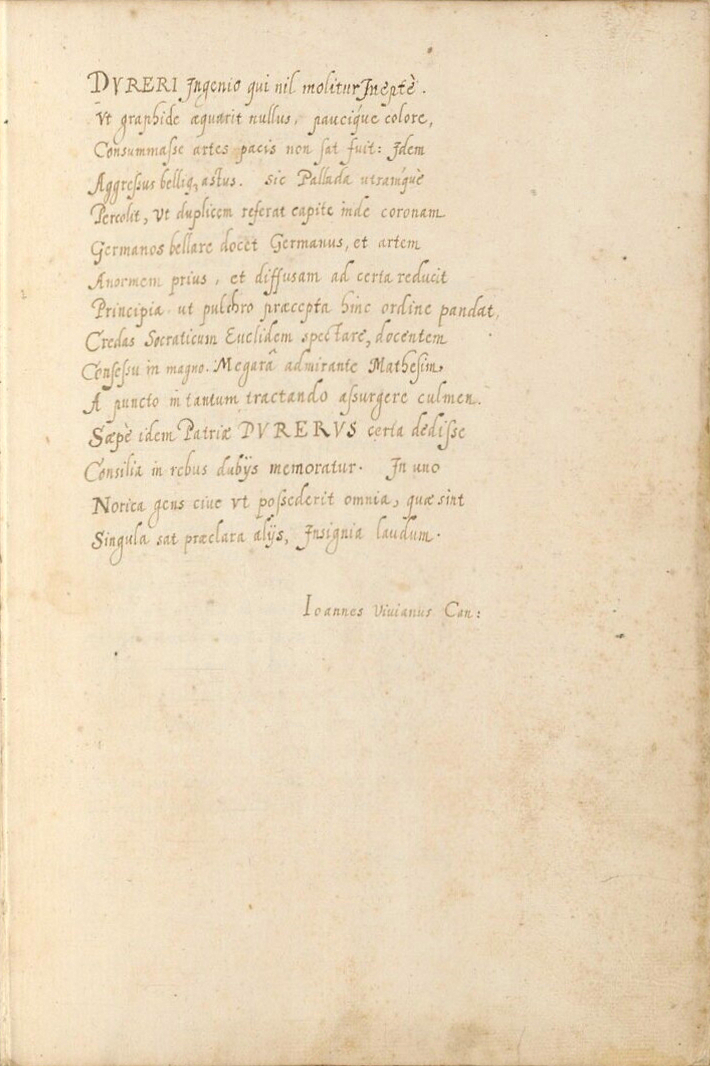 2
DVRERI Ingenio qui nil molitur Ineptè.
Vt graphide æquarit nullus, paucique colore,
Consummaſse artes pacis non ſat fuit: Idem
Aggreſsus bellique astus. Sic Pallada utramque
Percolit, Vt duplicem referat capite inde coronam
Germanos bellare docet Germanus, et artem
Anormem prius, et diffusam ad certa reducit
Principia ut pulchro præcepta hinc ordine pandat,
Credas Socraticum Euclidem spectare, docentem
Conſeſsu in magno. Megarâ admirante Matheſim,
A puncto in tantum tractando aſsurgere culmen.
Sæpè idem Patriæ DVRERVS certa dediſse
Consilia in rebus dubijs memoratur. In uno
Norica gens ciue vt poſsederit omnia, quæ sint
Singula sat præclara alijs, Insignia laudum.
Ioannes Viuianus Can: